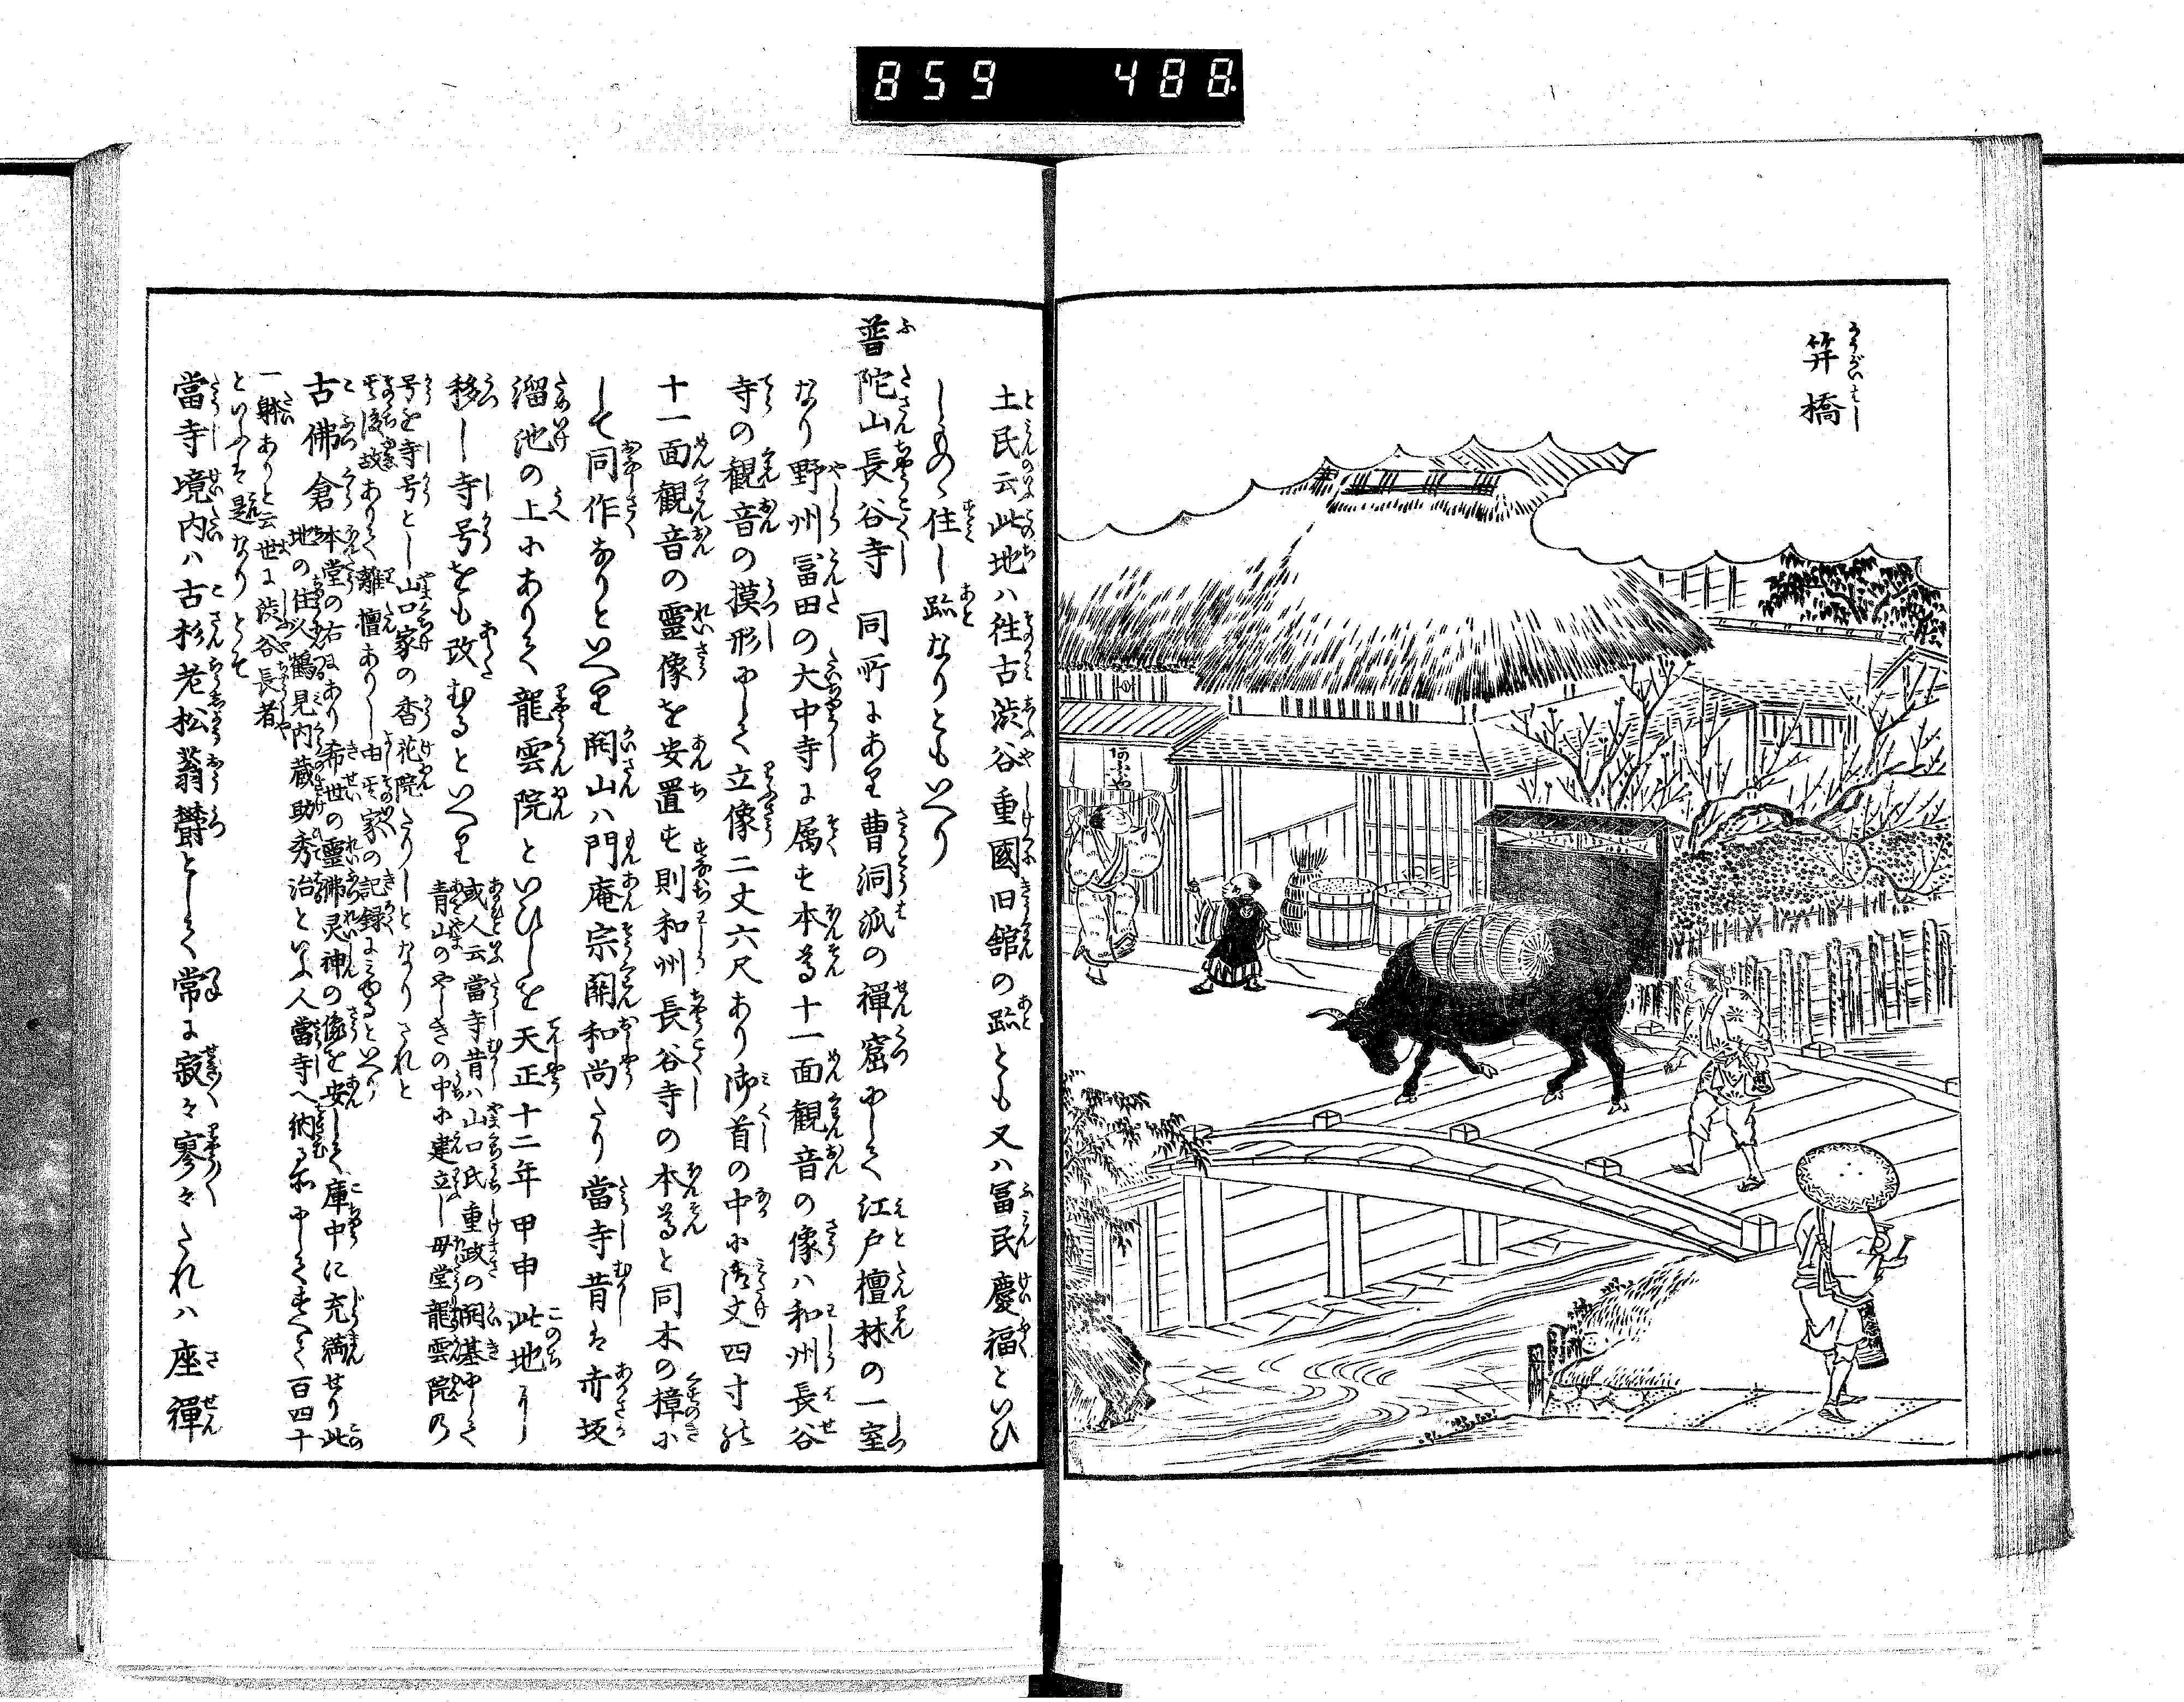 859 488
笄橋
土民云此地ハ往古渋谷重國旧舘の跡とも又ハ冨民慶福といひ
しものゝ住し跡なりともいへり
普陀山長谷寺 同所にあり曹洞派の禅窟にして江戸檀林の一室
なり野州冨田の大中寺に属す本尊十一面観音の像ハ和州長谷
寺の観音の摸形にして立像二丈六尺あり御首の中に御丈四寸の
十一面観音の霊像を安置す則和州長谷寺の本尊と同木の樟に
して同作なりといへり開山ハ門庵宗関和尚たり當寺昔は赤坂
溜池の上にありて龍雲院といひしを天正十二年甲申此地に
移し寺号をも改むるといへり
或人云當寺昔ハ山口氏重政の開基にして
青山のやしきの中に建立し母堂龍雲院の
号を寺号とし山口家の香花院たりしとなりされと
其後故ありて離檀ありし由其家の記録にみゆるといへり
古佛倉
本堂の右にあり希世の霊佛灵神の像を安して庫中に充満せり此
地の住人鶴見内蔵助秀治といふ人當寺へ納る所にしてすへて百四十
一躰ありと云世に渋谷長者
といふは是なりとそ
當寺境内ハ古杉老松蓊欝として常に寂々寥々たれハ座禅